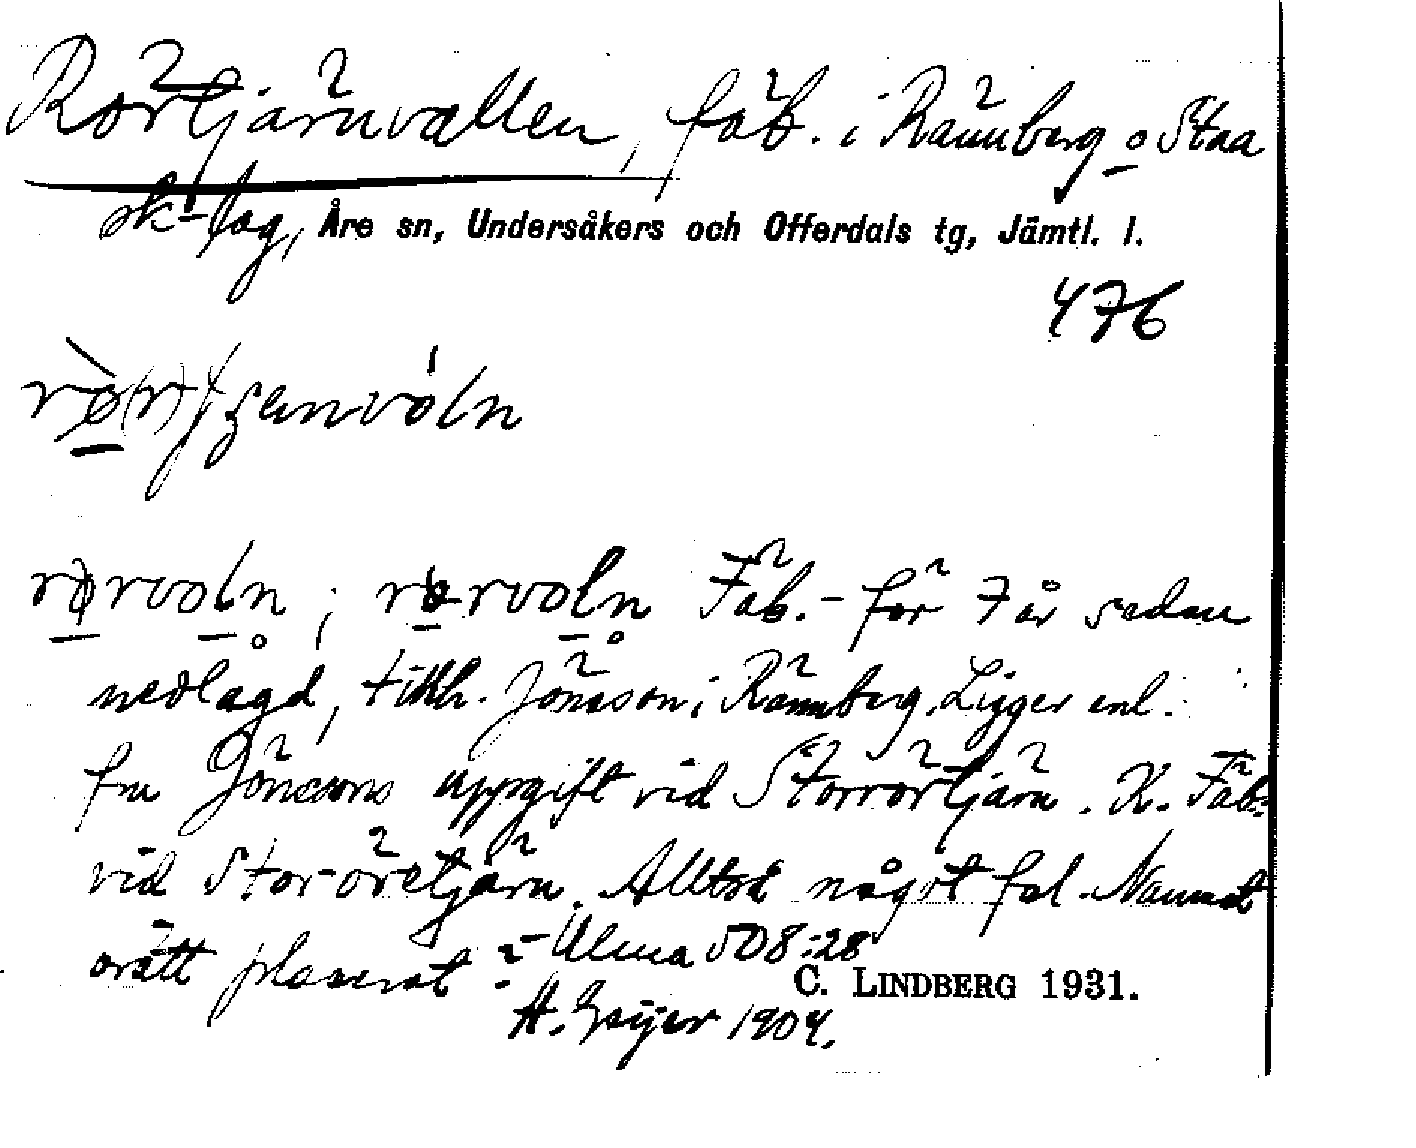 Rörtjärnvallen, fäb. i Rännberg o Staa
sk-lag, Åre sn, Undersåkers och Offerdals tg, Jämtl. l.
476
rørvoln; rørvoln Fäb. - för 7 år sedan
nedlagd, tillh. Jönsson i Rännberg. Ligger enl.
fru Jönssons uppgift vid Storrörtjärn. K. Fäb.
vid Stor-öretjärn. Alltså något fel. Namnet
orätt placerat? - Ulma 508:28
C. LINDBERG 1931.
H. Geijer 1904.